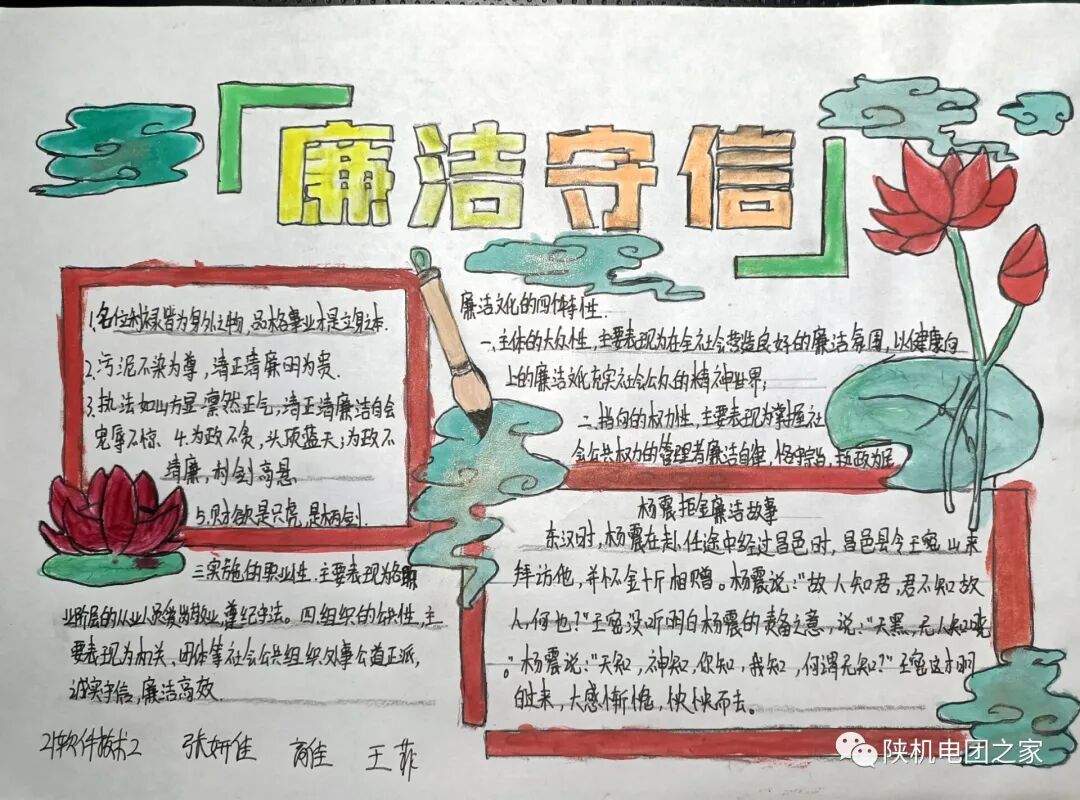 廉洁守信
1.名位利禄皆为身外之物,品格事业才是立身之本.
2.污泥不染为尊,清正清廉固为贵.
3.执法如山方显凛然正气,清正清廉洁自会
宠辱不惊. 4.为政不贪,头顶蓝天;为政不
清廉,利剑高悬
5.财欲是只虎,是柄剑.
廉洁文化的四个特性.
一.主体的大众性,主要表现为在全社会营造良好的廉洁氛围,以健康向
上的廉洁文化充实社会公众的精神世界;
二.指向的权力性,主要表现为掌握社
会公共权力的管理者廉洁自律,恪守宗旨,执政为民
三.实施的职业性.主要表现为各职
业阶层的从业人员爱岗敬业,遵纪守法。四.组织的公共性,主
要表现为机关、团体等社会公共组织处事公道正派,
诚实守信,廉洁高效
杨震拒金廉洁故事
东汉时,杨震在赴任途中经过昌邑时,昌邑县令王密,出来
拜访他,并怀金十斤相赠。杨震说:"故人知君,君不知故
人,何也?"王密没听明白杨震的责备之意,说:"天黑,无人知晓
。"杨震说:"天知,神知,你知,我知,何谓无知?"王密这才明
白过来,大感惭愧,怏怏而去。
21软件技术2 张妍佳 商佳 王菲
陕机电团之家